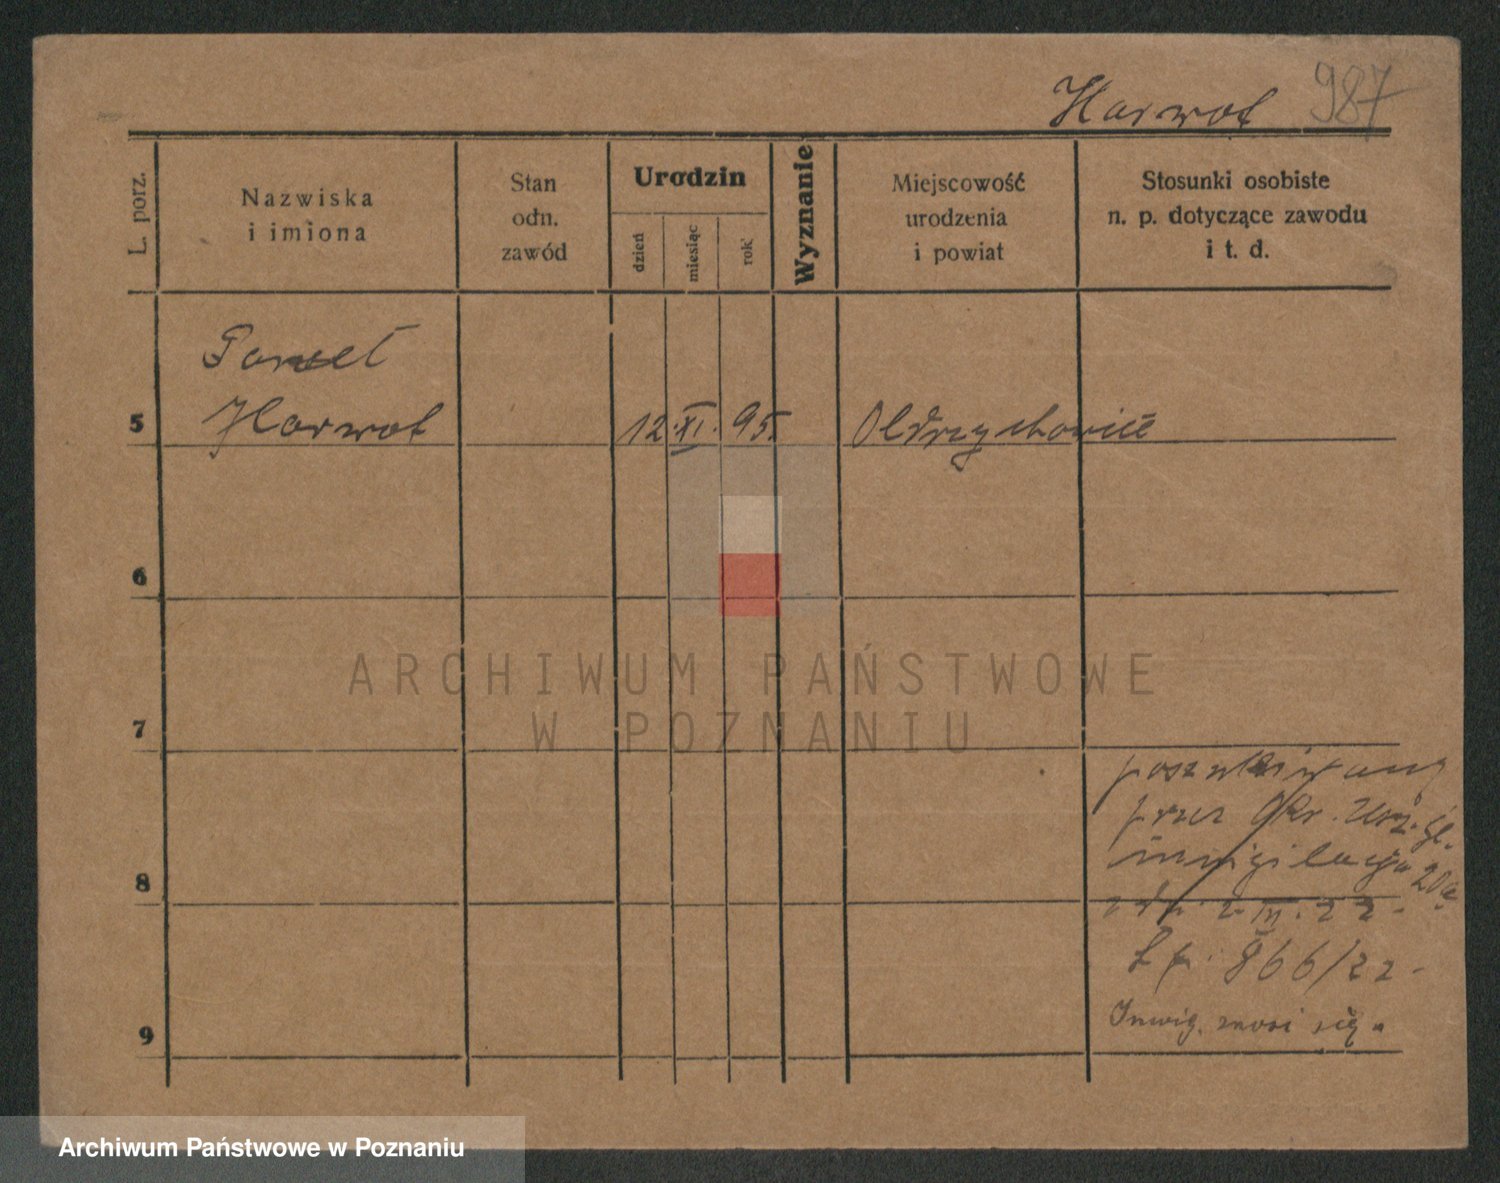 Harwot 987
L. porz.
Nazwiska
i imiona
Stan
odn.
zawód
Urodzin
dzień
miesiąc
rok
Wyznanie
Miejscowość
urodzenia
i powiat
Stosunki osobiste
n. p. dotyczące zawodu
i t. d.
Paweł
5 Harwot 12. XI. 95. Oldrzychowice
6
ARCHIWUM PAŃSTWOWE
W POZNANIU
7
poszukiwany
przez Okr. Urz. Śl.
inwigilacja
8
2. III. 22.
866/22
Inwig. znosi się.
9
Archiwum Państwowe w Poznaniu